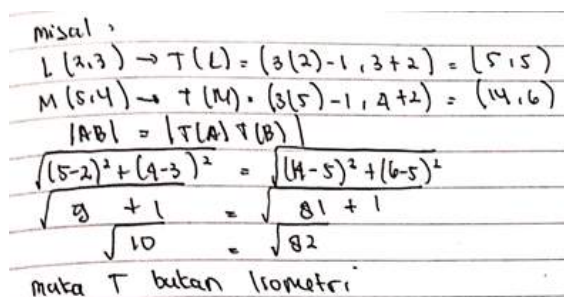 misal :
L (2,3) → T(L) = (3(2)-1, 3+2) = (5,5)
M (5,4) → T(M) = (3(5)-1, 4+2) = (14,6)
|AB| = |T(A) T(B)|
√((5-2)² + (4-3)²) = √((14-5)² + (6-5)²)
√(9 + 1) = √(81 + 1)
√10 = √82
maka T bukan Isometri